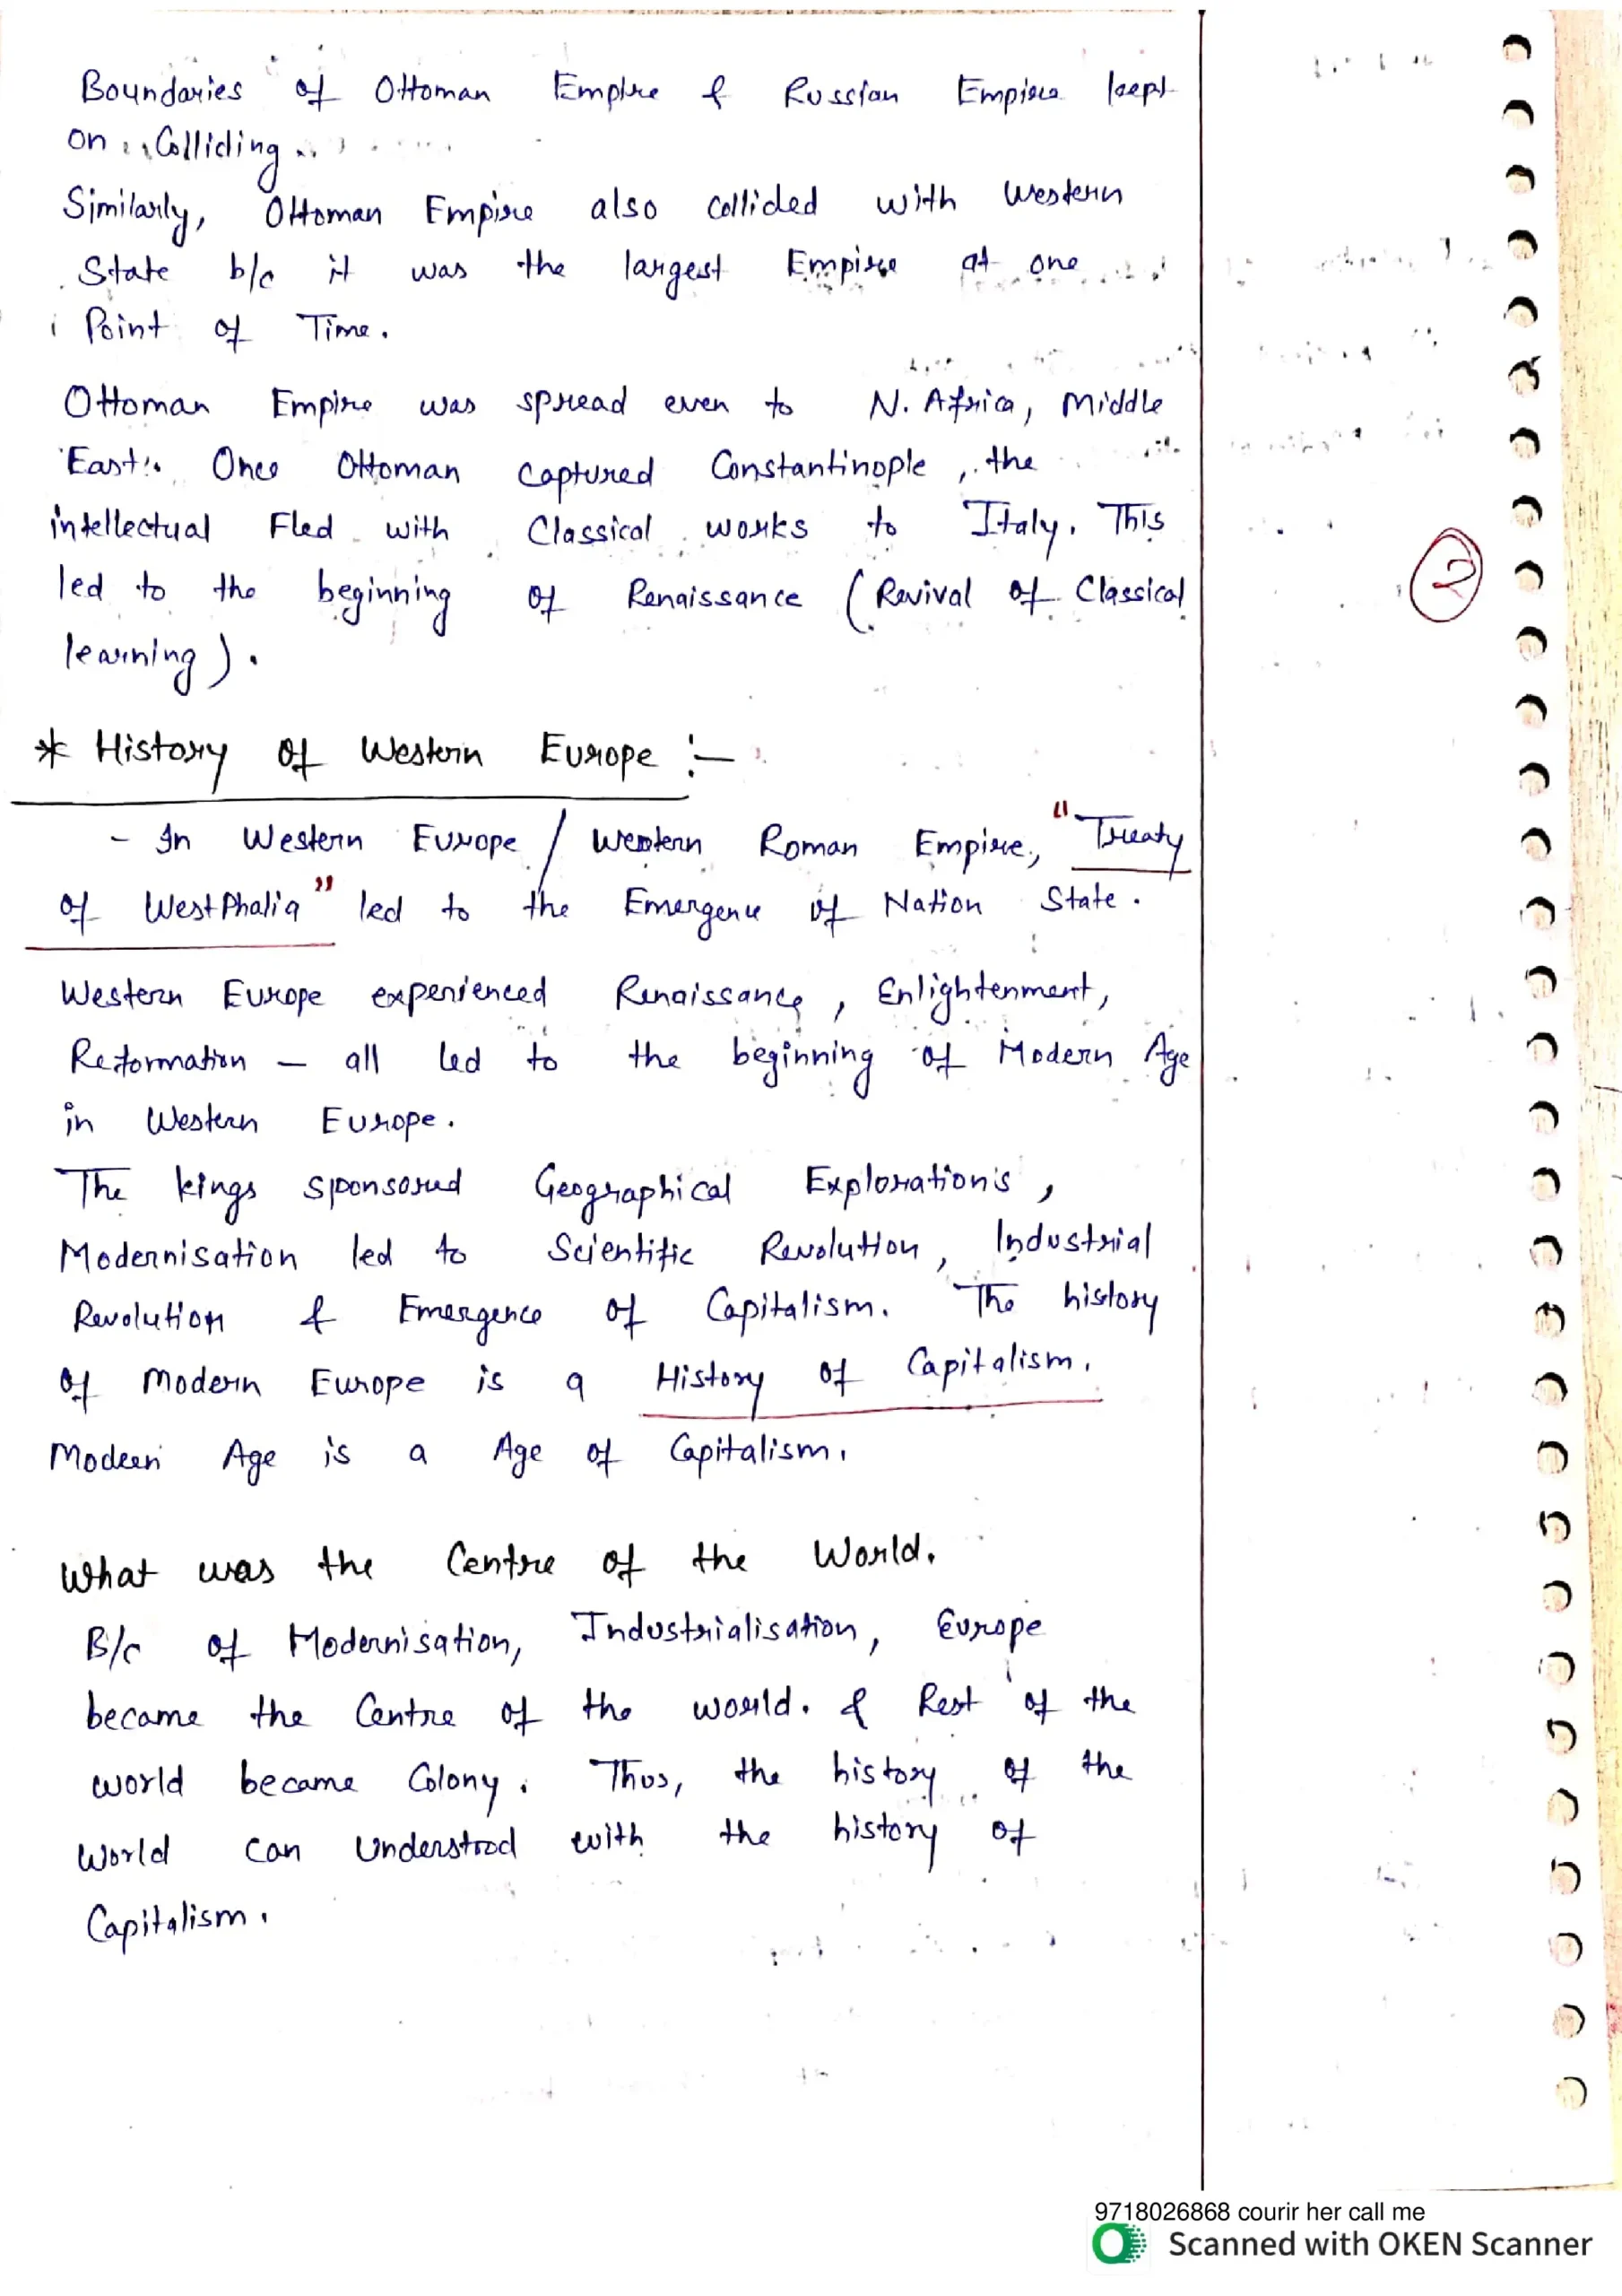 Boundaries of Ottoman Empire & Russian Empire kept
on Colliding.
Similarly, Ottoman Empire also collided with Western
State b/c it was the largest Empire at one
Point of Time.
Ottoman Empire was spread even to N. Africa, Middle
East. Once Ottoman captured Constantinople, the
intellectual Fled with Classical works to Italy. This
led to the beginning of Renaissance (Revival of Classical
learning).
2
* History of Western Europe :-
- In Western Europe / Western Roman Empire, "Treaty
of WestPhalia" led to the Emergence of Nation State.
Western Europe experienced Renaissance, Enlightenment,
Reformation - all led to the beginning of Modern Age
in Western Europe.
The kings sponsored Geographical Explorations,
Modernisation led to Scientific Revolution, Industrial
Revolution & Emergence of Capitalism. The history
of Modern Europe is a History of Capitalism.
Modern Age is a Age of Capitalism.
What was the Centre of the World.
B/c of Modernisation, Industrialisation, Europe
became the Centre of the world. & Rest of the
world became Colony. Thus, the history of the
World can Understood with the history of
Capitalism.
9718026868 courir her call me
Scanned with OKEN Scanner